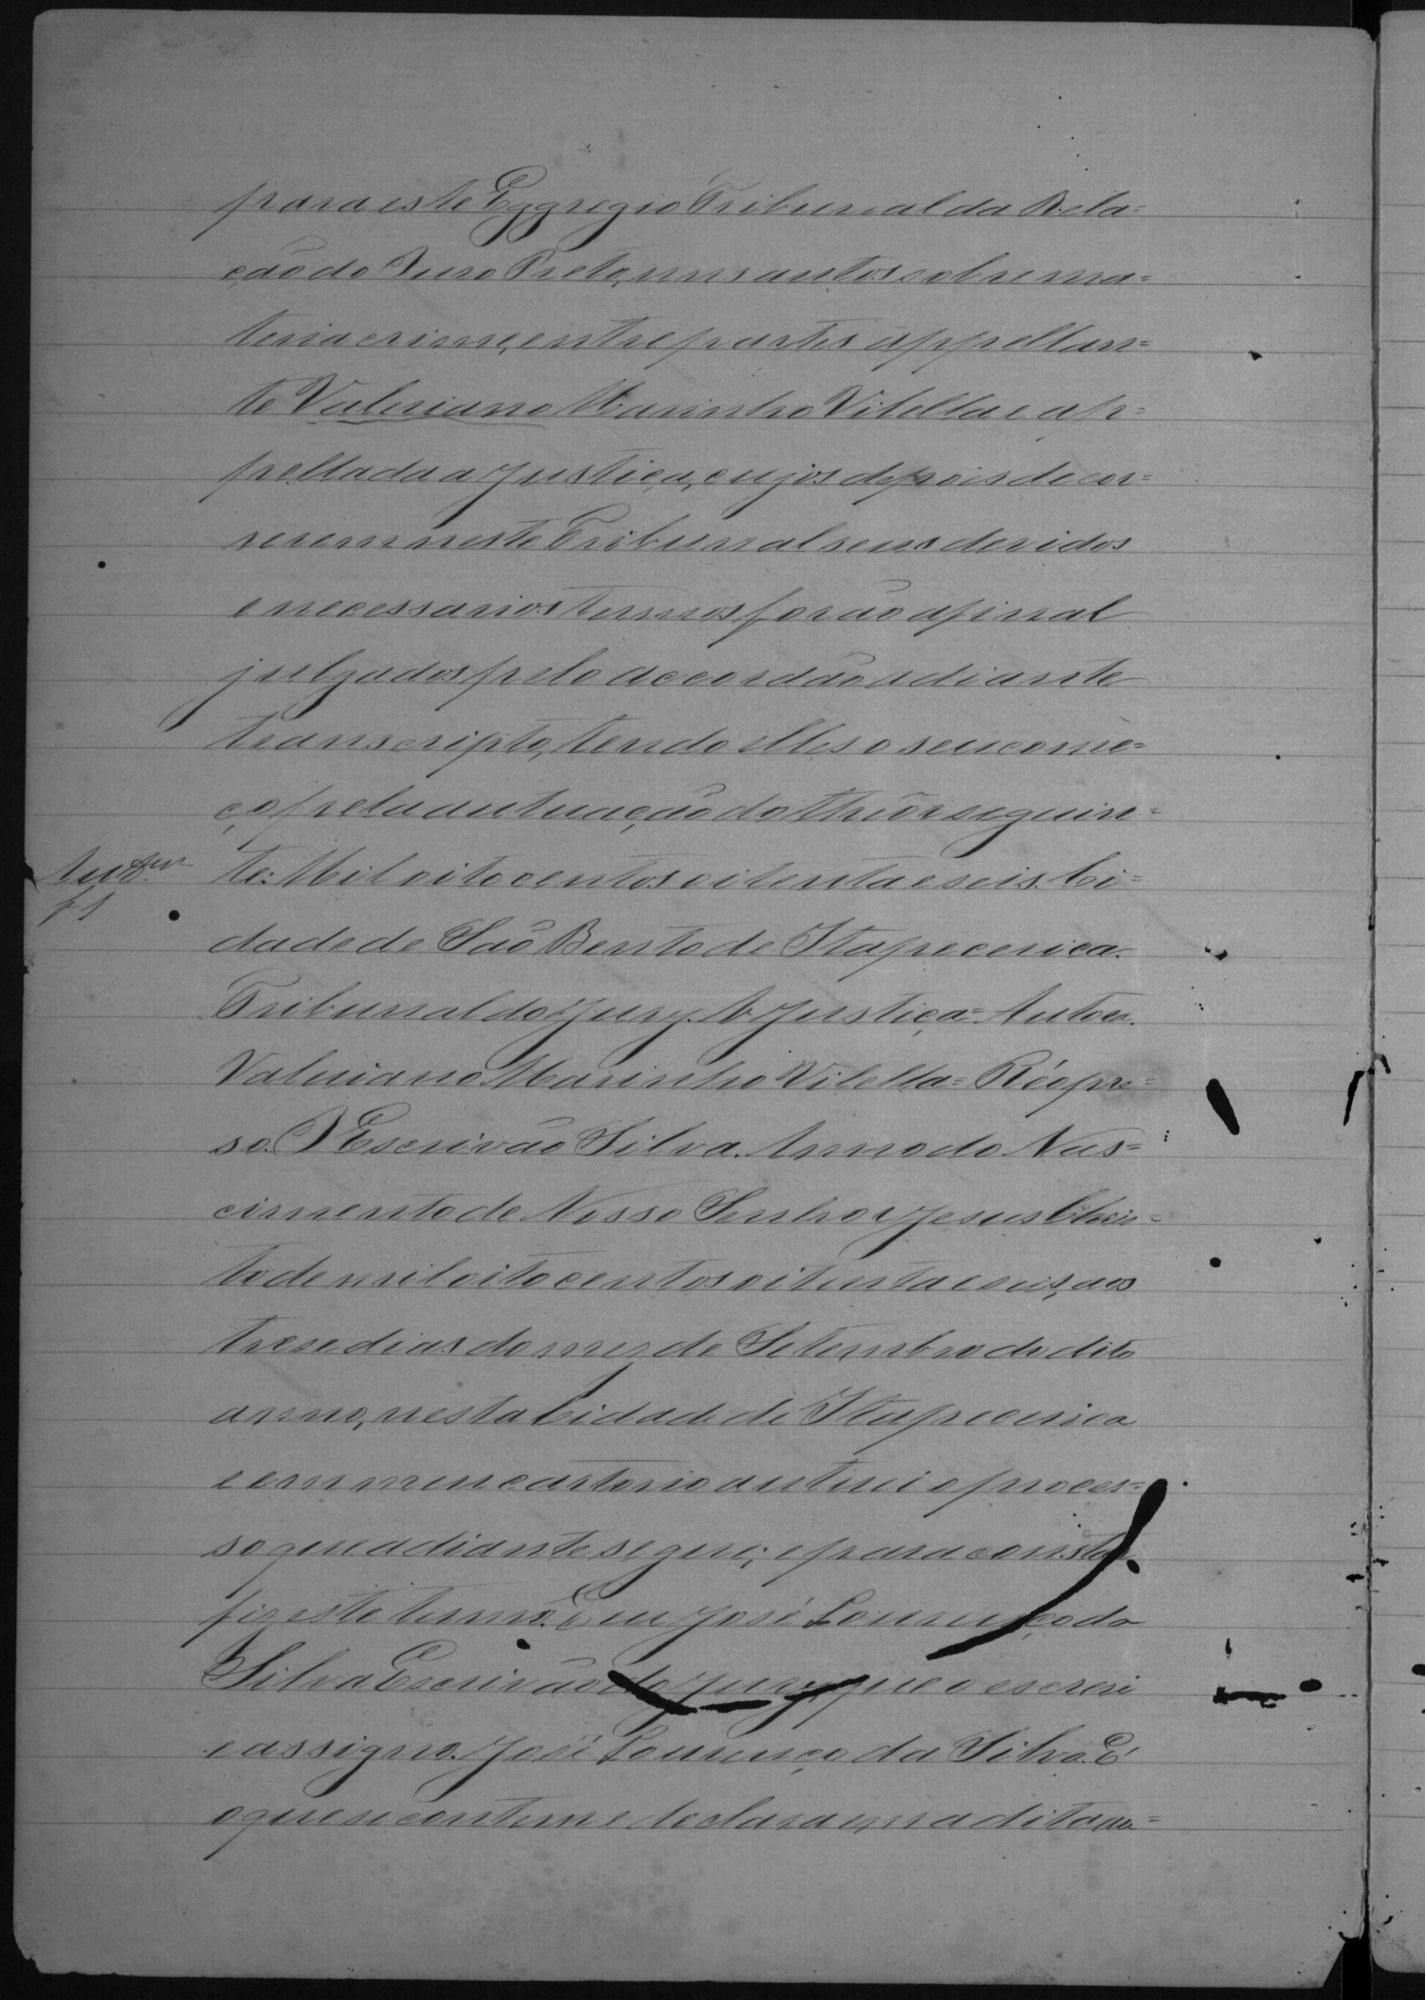 para este Eggregio Tribunal da Rela=
ção do Ouro Preto, uns autos sobre ma=
teria crime, entre partes appellan=
te Valeriano Marinho Vilella e ap=
pellada a Justiça, cujos depois de cor=
rerem neste Tribunal seus devidos
e necessarios termos forão afinal
julgados pelo accordão adiante
transcripto, tendo elles o seu come=
ço pela autuação do theôr seguin=
Autm
f 1
te: Mil oitocentos oitenta e seis. Ci=
dade de São Bento de Itapecerica.
Tribunal do Jury. A Justiça= Autora.
Valeriano Marinho Vilella= Réo pre=
so. O Escrivão Silva. Anno do Nas=
cimento de Nosso Senhor Jesus Chris=
to de mil oitocentos oitenta e seis, aos
trese dias do mes de Setembro do dito
anno, nesta Cidade de Itapecerica
e em meu cartorio autuei o proces=
so que adiante segue; e para constar
fiz este termo. Eu José Lourenço da
Silva Escrivão do Jury, que o escrevi
e assigno. José Lourenço da Silva. É
o que se contem e declara em a dita au=